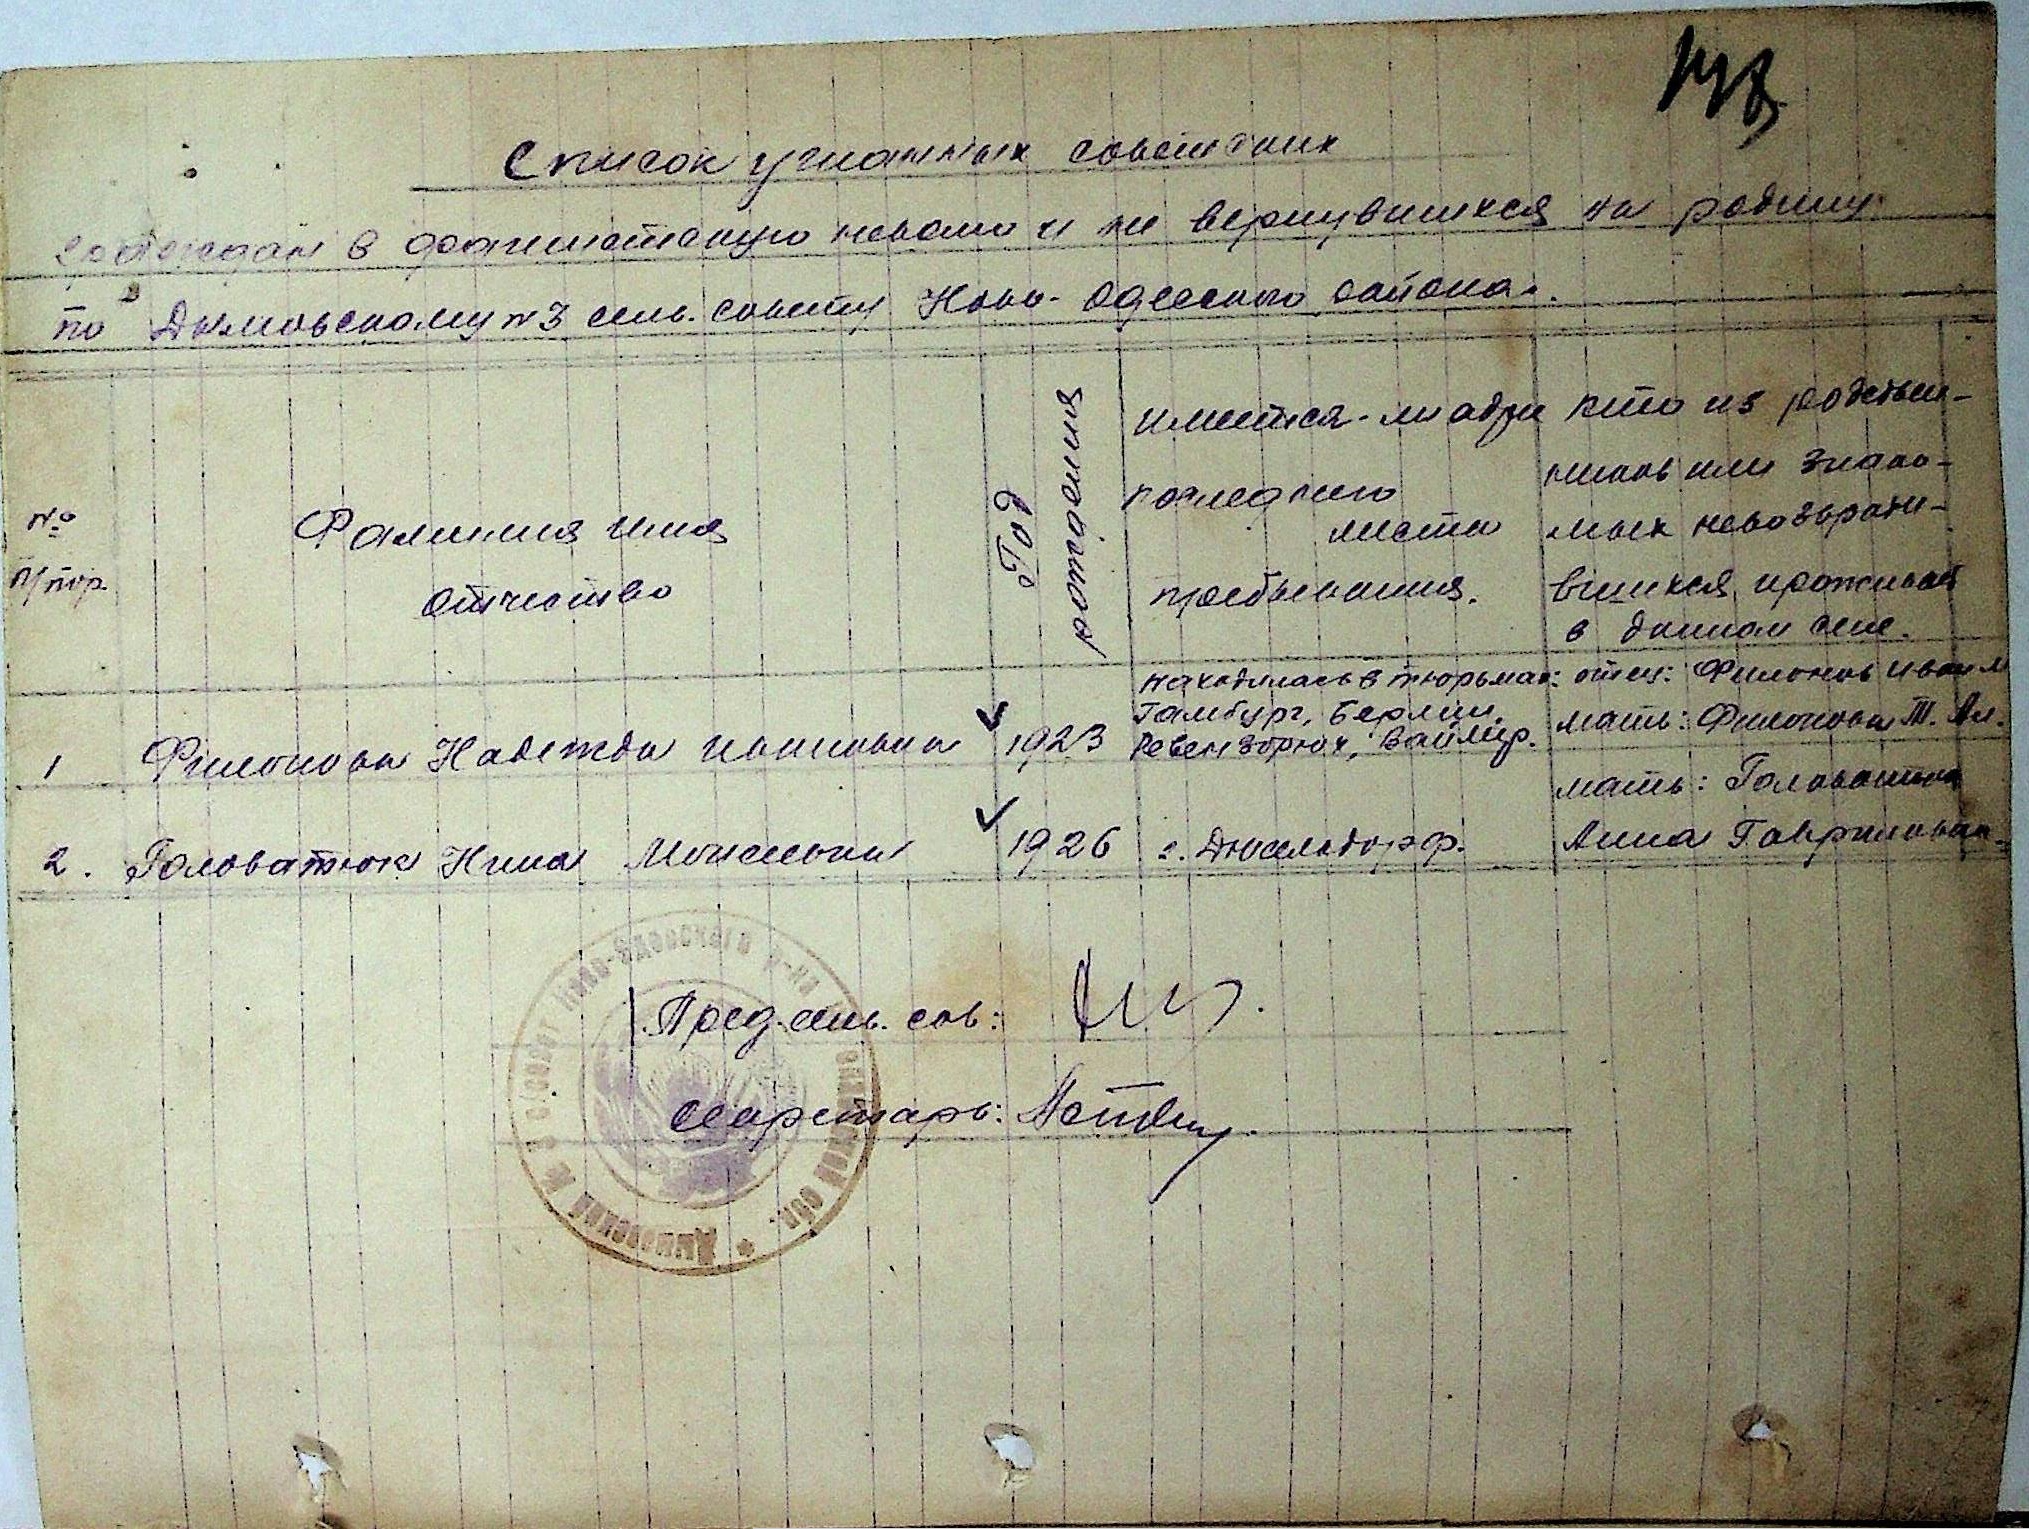 Список угнанных советских
граждан в фашистскую неволю и не вернувшихся на родину
по Дымовскому № 3 сель. совету Ново-Одесского района.
№ п/пор.
Фамилия имя отчество
Год рождения
имеется-ли адри последнего места пребывания.
кто из родствен-
ников или знако-
мых невозврати-
вшихся, проживает
в данном селе.
1 Филонова Надежда Ивановна 1923
находилась в тюрьмах:
Гамбург, Берлин,
Ревензбрюк, Ваймар.
отец: Филонов Иван М
мать: Филонова Т. Ан.
2. Головатюк Нина Моисеевна 1926 г. Дюссельдорф.
мать: Головатюк
Анна Гавриловна
Пред. сель. сов:
Секретарь:
Дымовский № 3 с/совет Ново-Одесского р-на Николаевской обл.